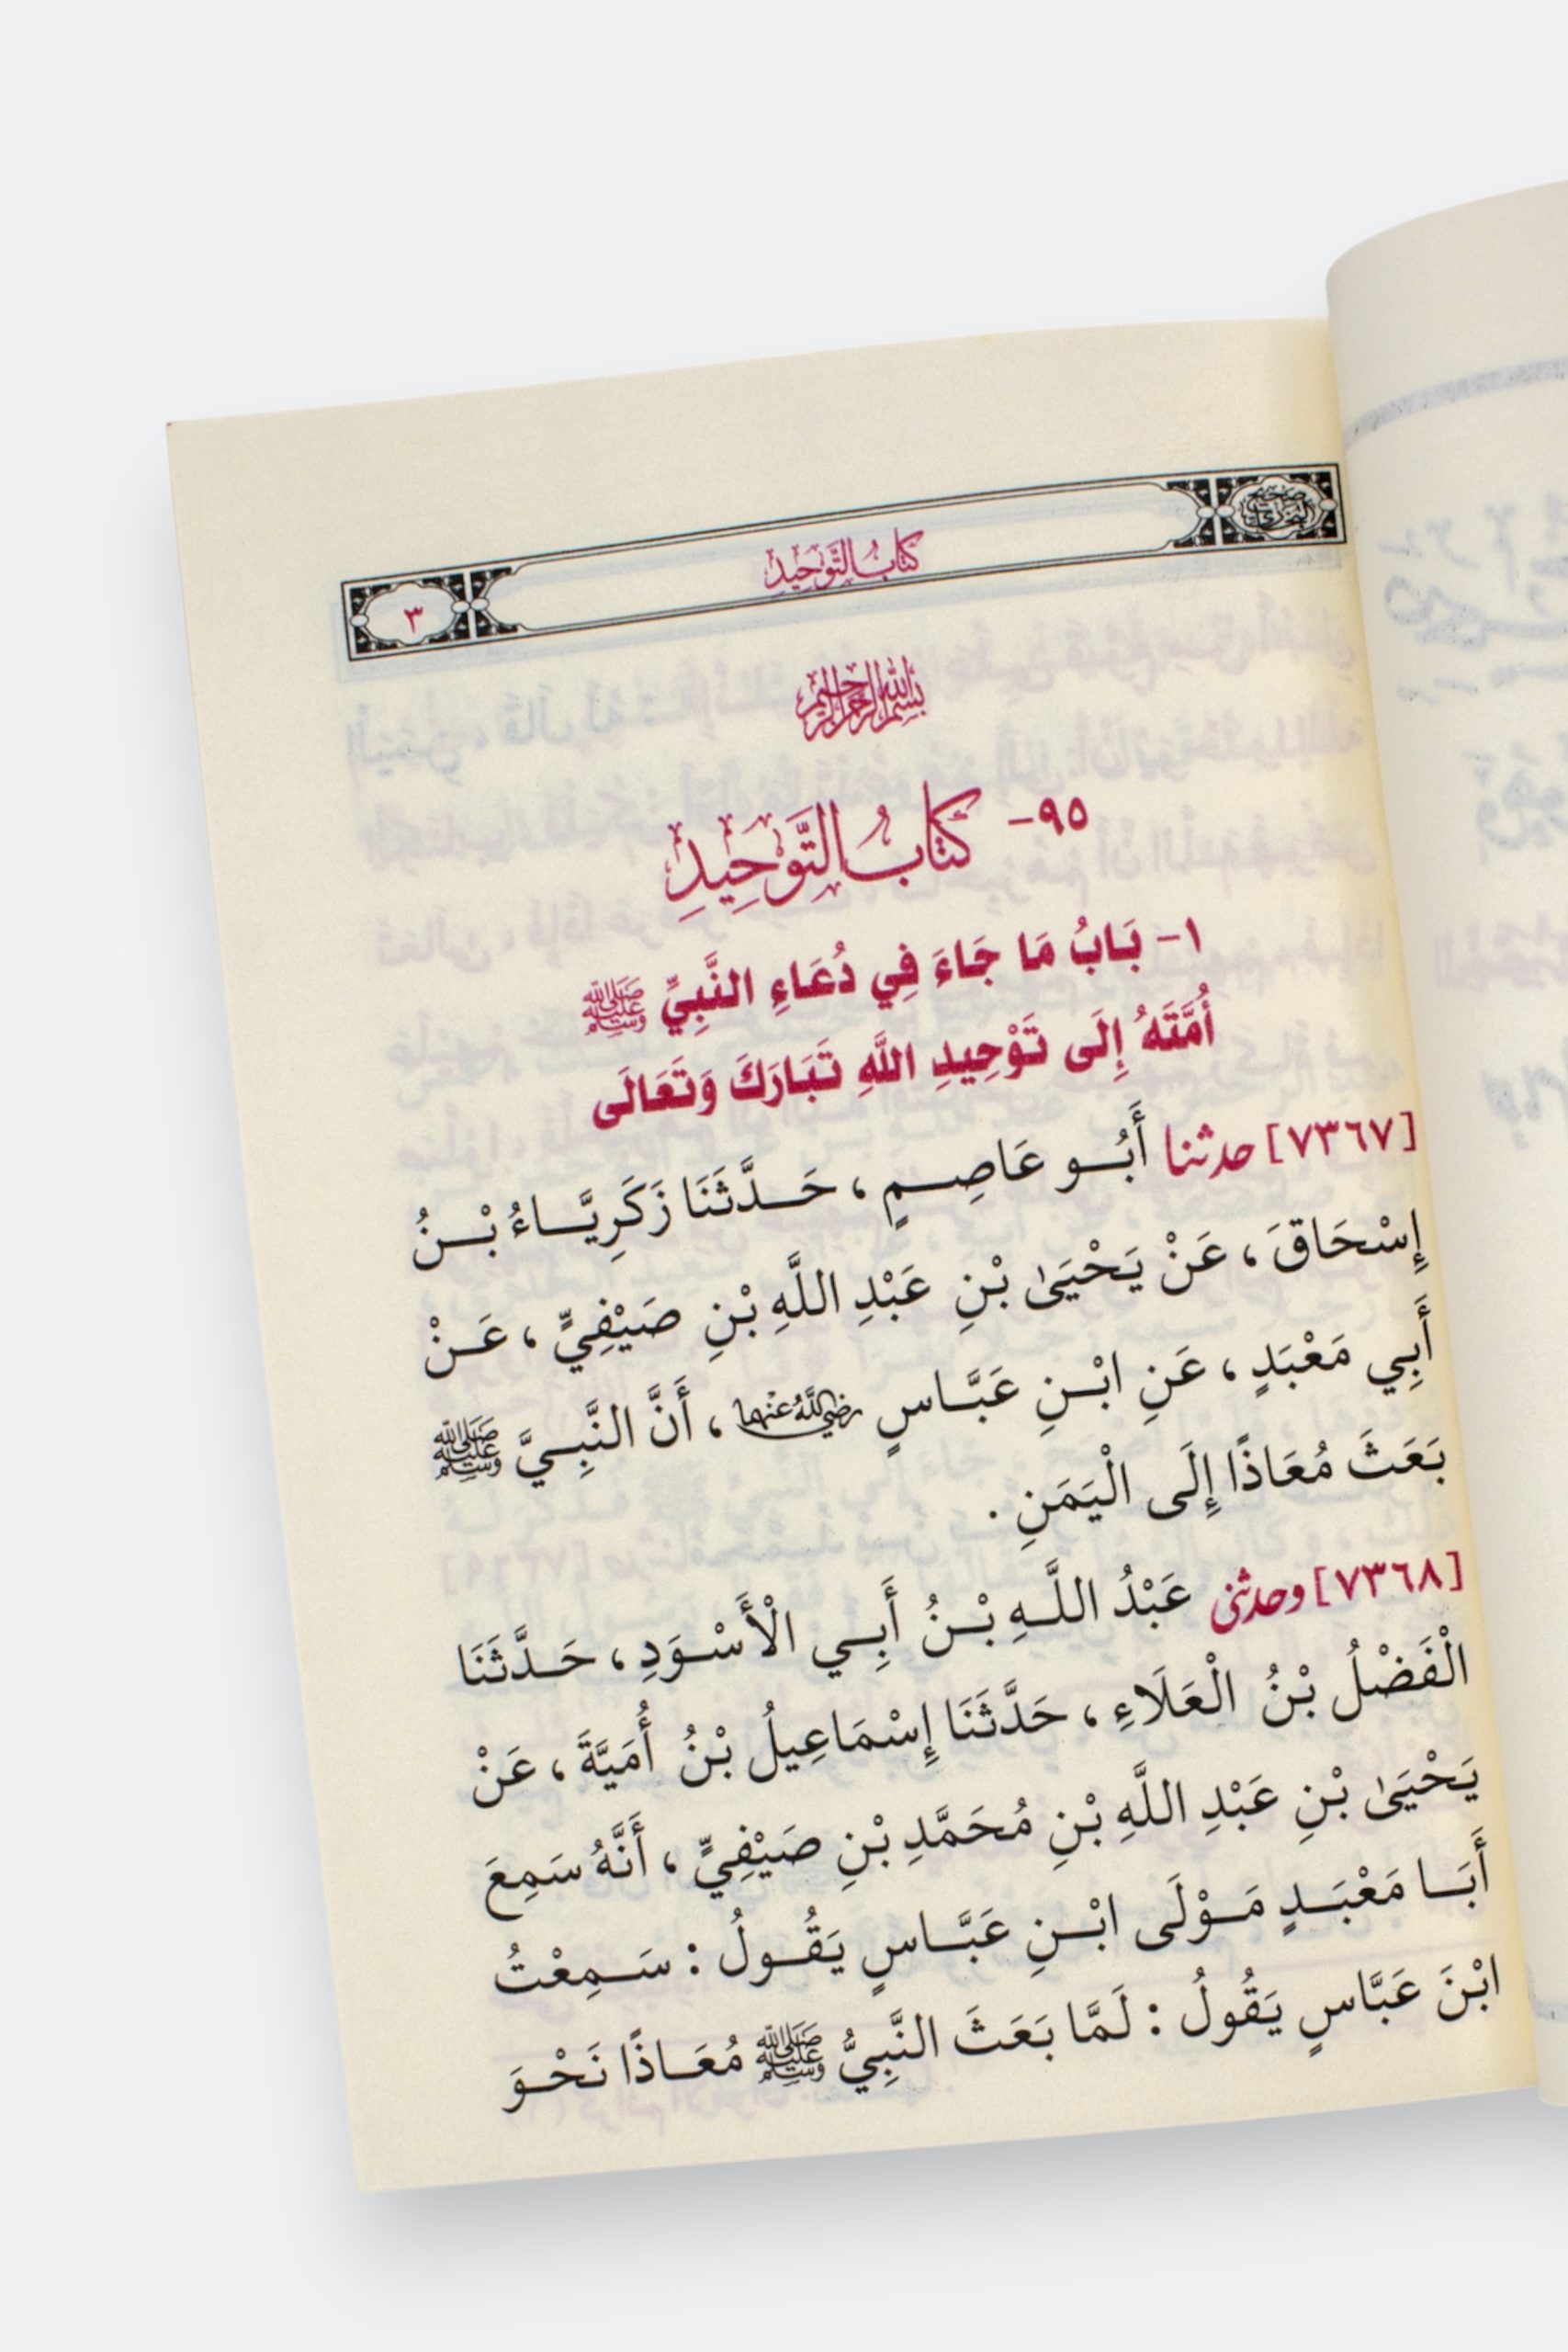 صحيح البخاري
كِتَابُ التَّوْحِيدِ
٣
بسم الله الرحمن الرحيم
٩٥- كِتَابُ التَّوْحِيدِ
١- بَابُ مَا جَاءَ فِي دُعَاءِ النَّبِيِّ ﷺ
أُمَّتَهُ إِلَى تَوْحِيدِ اللَّهِ تَبَارَكَ وَتَعَالَى
[٧٣٦٧] حدثنا أَبُو عَاصِمٍ ، حَدَّثَنَا زَكَرِيَّاءُ بْنُ
إِسْحَاقَ ، عَنْ يَحْيَىٰ بْنِ عَبْدِ اللَّهِ بْنِ صَيْفِيٍّ ، عَنْ
أَبِي مَعْبَدٍ ، عَنِ ابْنِ عَبَّاسٍ رَضِيَ اللَّهُ عَنْهُمَا ، أَنَّ النَّبِيَّ ﷺ
بَعَثَ مُعَاذًا إِلَى الْيَمَنِ .
[٧٣٦٨] وحدثني عَبْدُ اللَّهِ بْنُ أَبِي الْأَسْوَدِ ، حَدَّثَنَا
الْفَضْلُ بْنُ الْعَلَاءِ ، حَدَّثَنَا إِسْمَاعِيلُ بْنُ أُمَيَّةَ ، عَنْ
يَحْيَىٰ بْنِ عَبْدِ اللَّهِ بْنِ مُحَمَّدِ بْنِ صَيْفِيٍّ ، أَنَّهُ سَمِعَ
أَبَا مَعْبَدٍ مَوْلَى ابْنِ عَبَّاسٍ يَقُولُ : سَمِعْتُ
ابْنَ عَبَّاسٍ يَقُولُ : لَمَّا بَعَثَ النَّبِيُّ ﷺ مُعَاذًا نَحْوَ